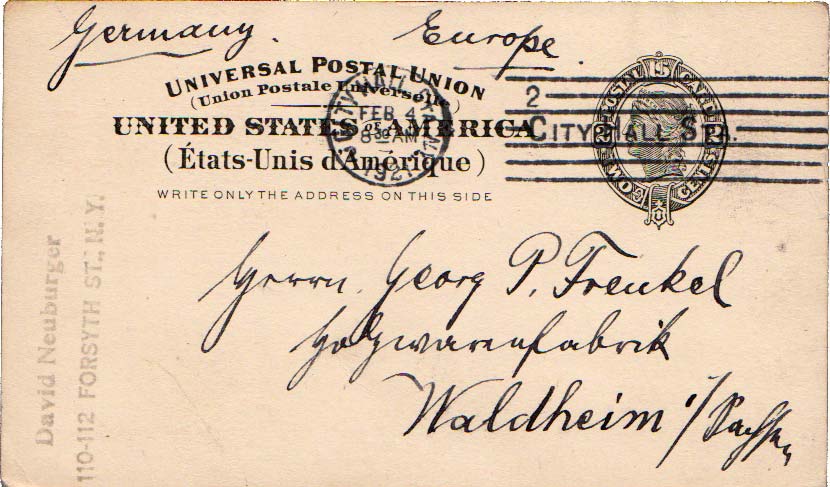 Germany. Europe.
UNIVERSAL POSTAL UNION
(Union Postale Universelle)
UNITED STATES OF AMERICA
(États-Unis d'Amérique)
WRITE ONLY THE ADDRESS ON THIS SIDE
CITY HALL STA.
FEB 4
8 30 AM
192
2
CITY HALL STA.
POSTAL CARD
2 2
TWO CENTS
Herrn. Georg P. Frenkel
Holzwarenfabrik
Waldheim i/Sachsen
David Neuburger
110-112 FORSYTH ST., N. Y.